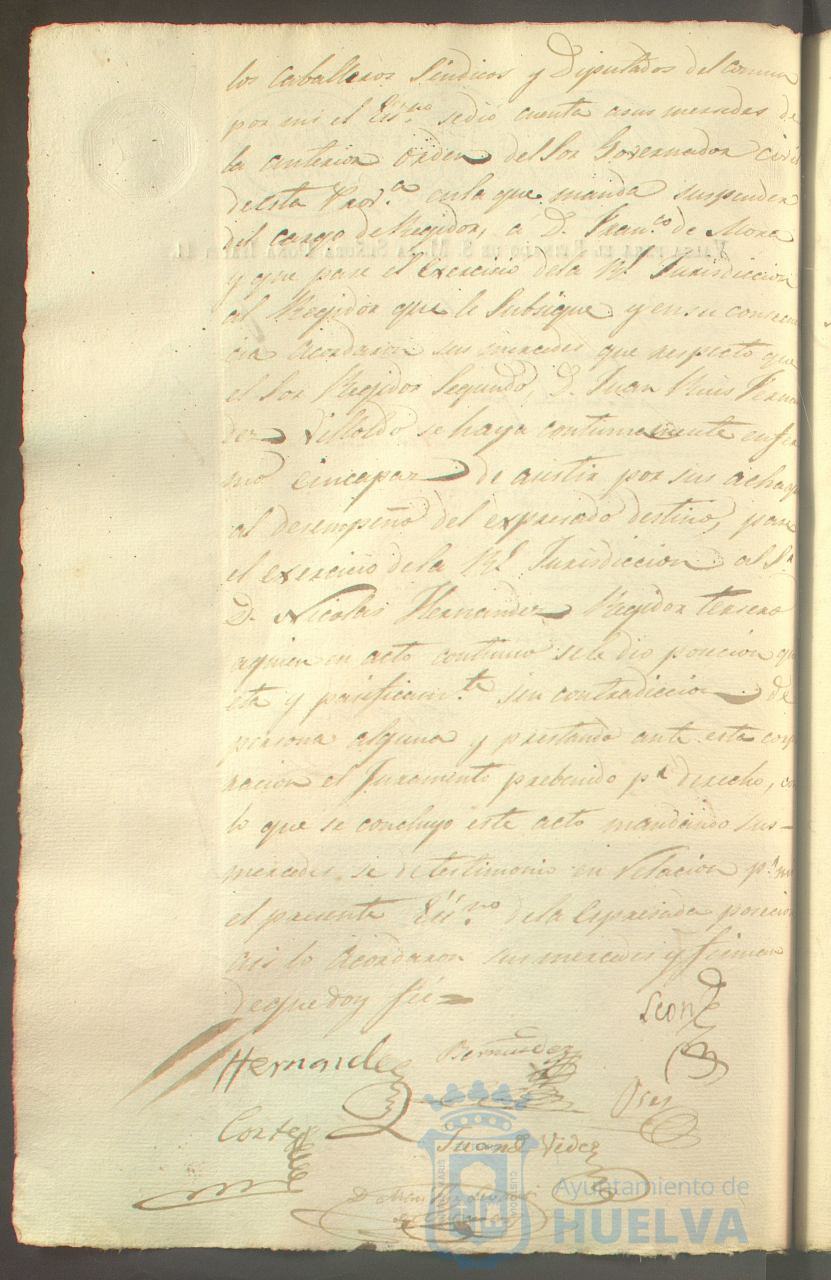 los Caballeros Sindicos y Diputados del comun
por mi el Ess.no se dió cuenta a sus mercedes de
la anterior orden del Sor Governador civil
de esta Prov.a en la que manda suspender
del cargo de Regidor, a D. Fran.co de Mora
y que pase el Exercicio de la Rl Jurisdiccion
al Regidor que le Subsigue y en su consecuen
cia acordaron sus mercedes que respecto que
el Sor Regidor Segundo, D. Juan Ruis Fernan
dez se haya continuamente enfer
mo e incapaz de asistir por sus achaq
al desempeño del expresado destino, pase
el exercicio de la Rl Jurisdiccion al Sr
D. Nicolas Hernandez Regidor tersero
a quien en acto continuo se le dio posecion qui
eta y pasificam.te sin contradiccion de
persona alguna y prestando ante esta corpo
racion el Juramento prebenido pr derecho, con
lo que se concluyo este acto mandando sus
mercedes se de testimonio en relacion pr mi
el presente Ess.no de la Espresada posecion
asi lo acordaron sus mercedes y firman
de que doy fée
Hernandez
Bermudez
Cortes
Juan
Ayuntamiento de
HUELVA